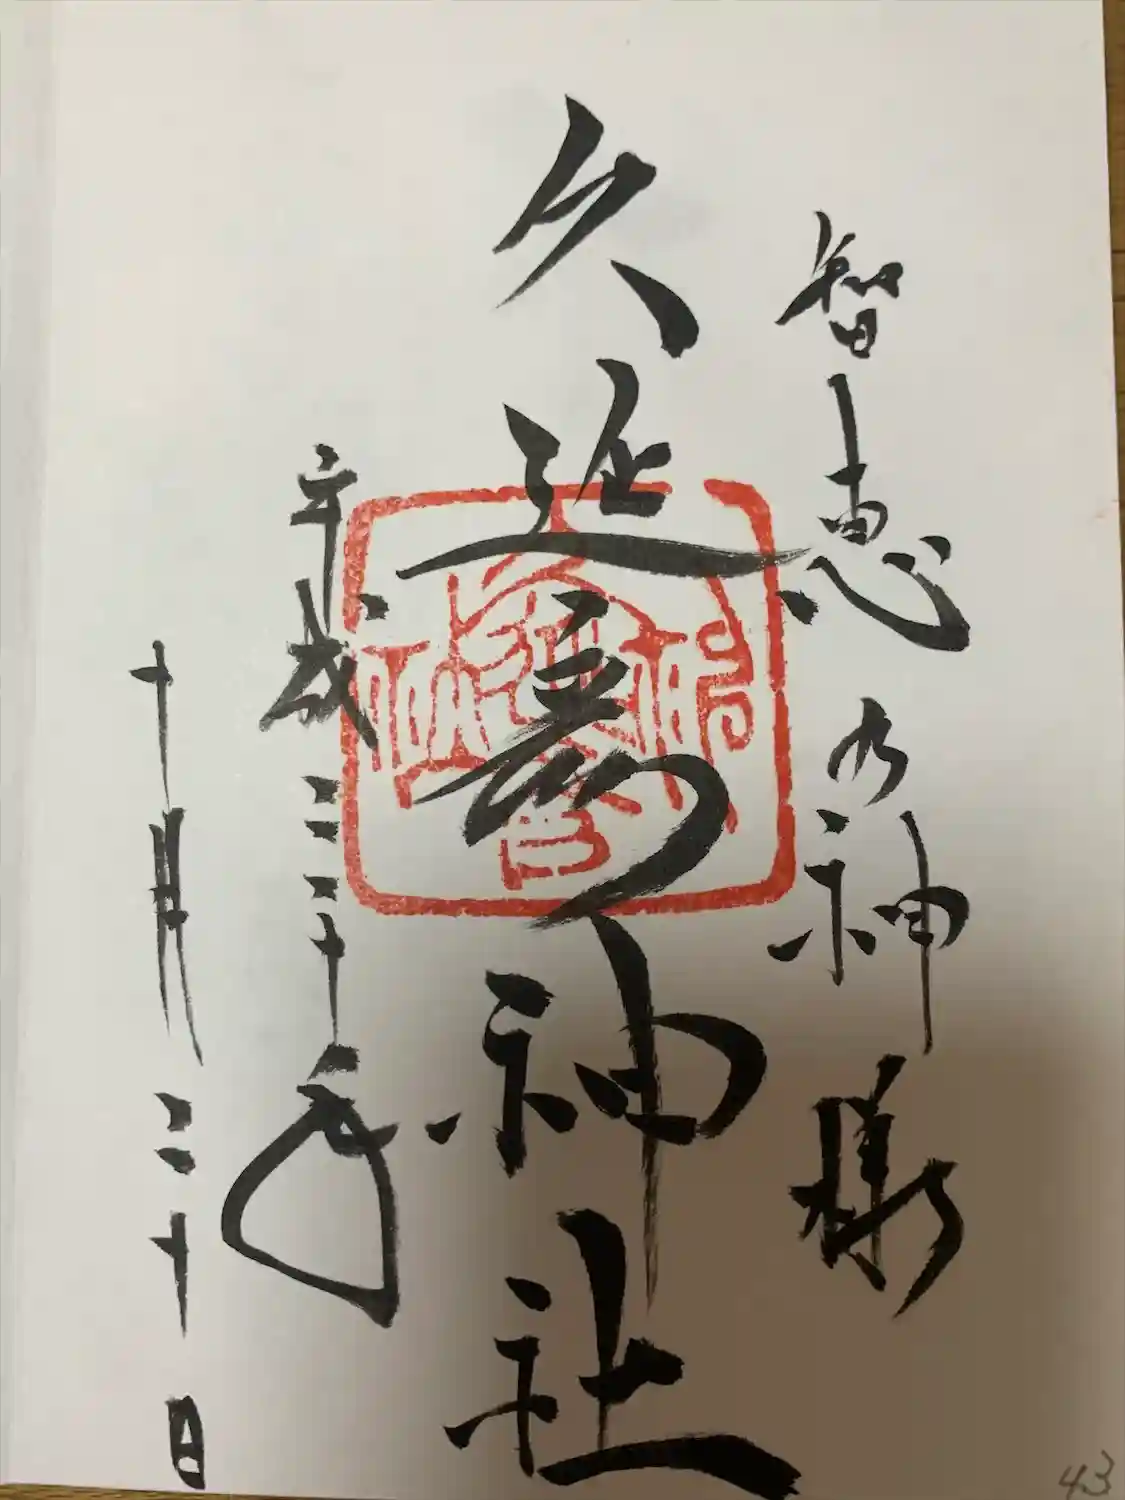 智恵の神様
久延彦神社
平成二十年
十月二十日
43